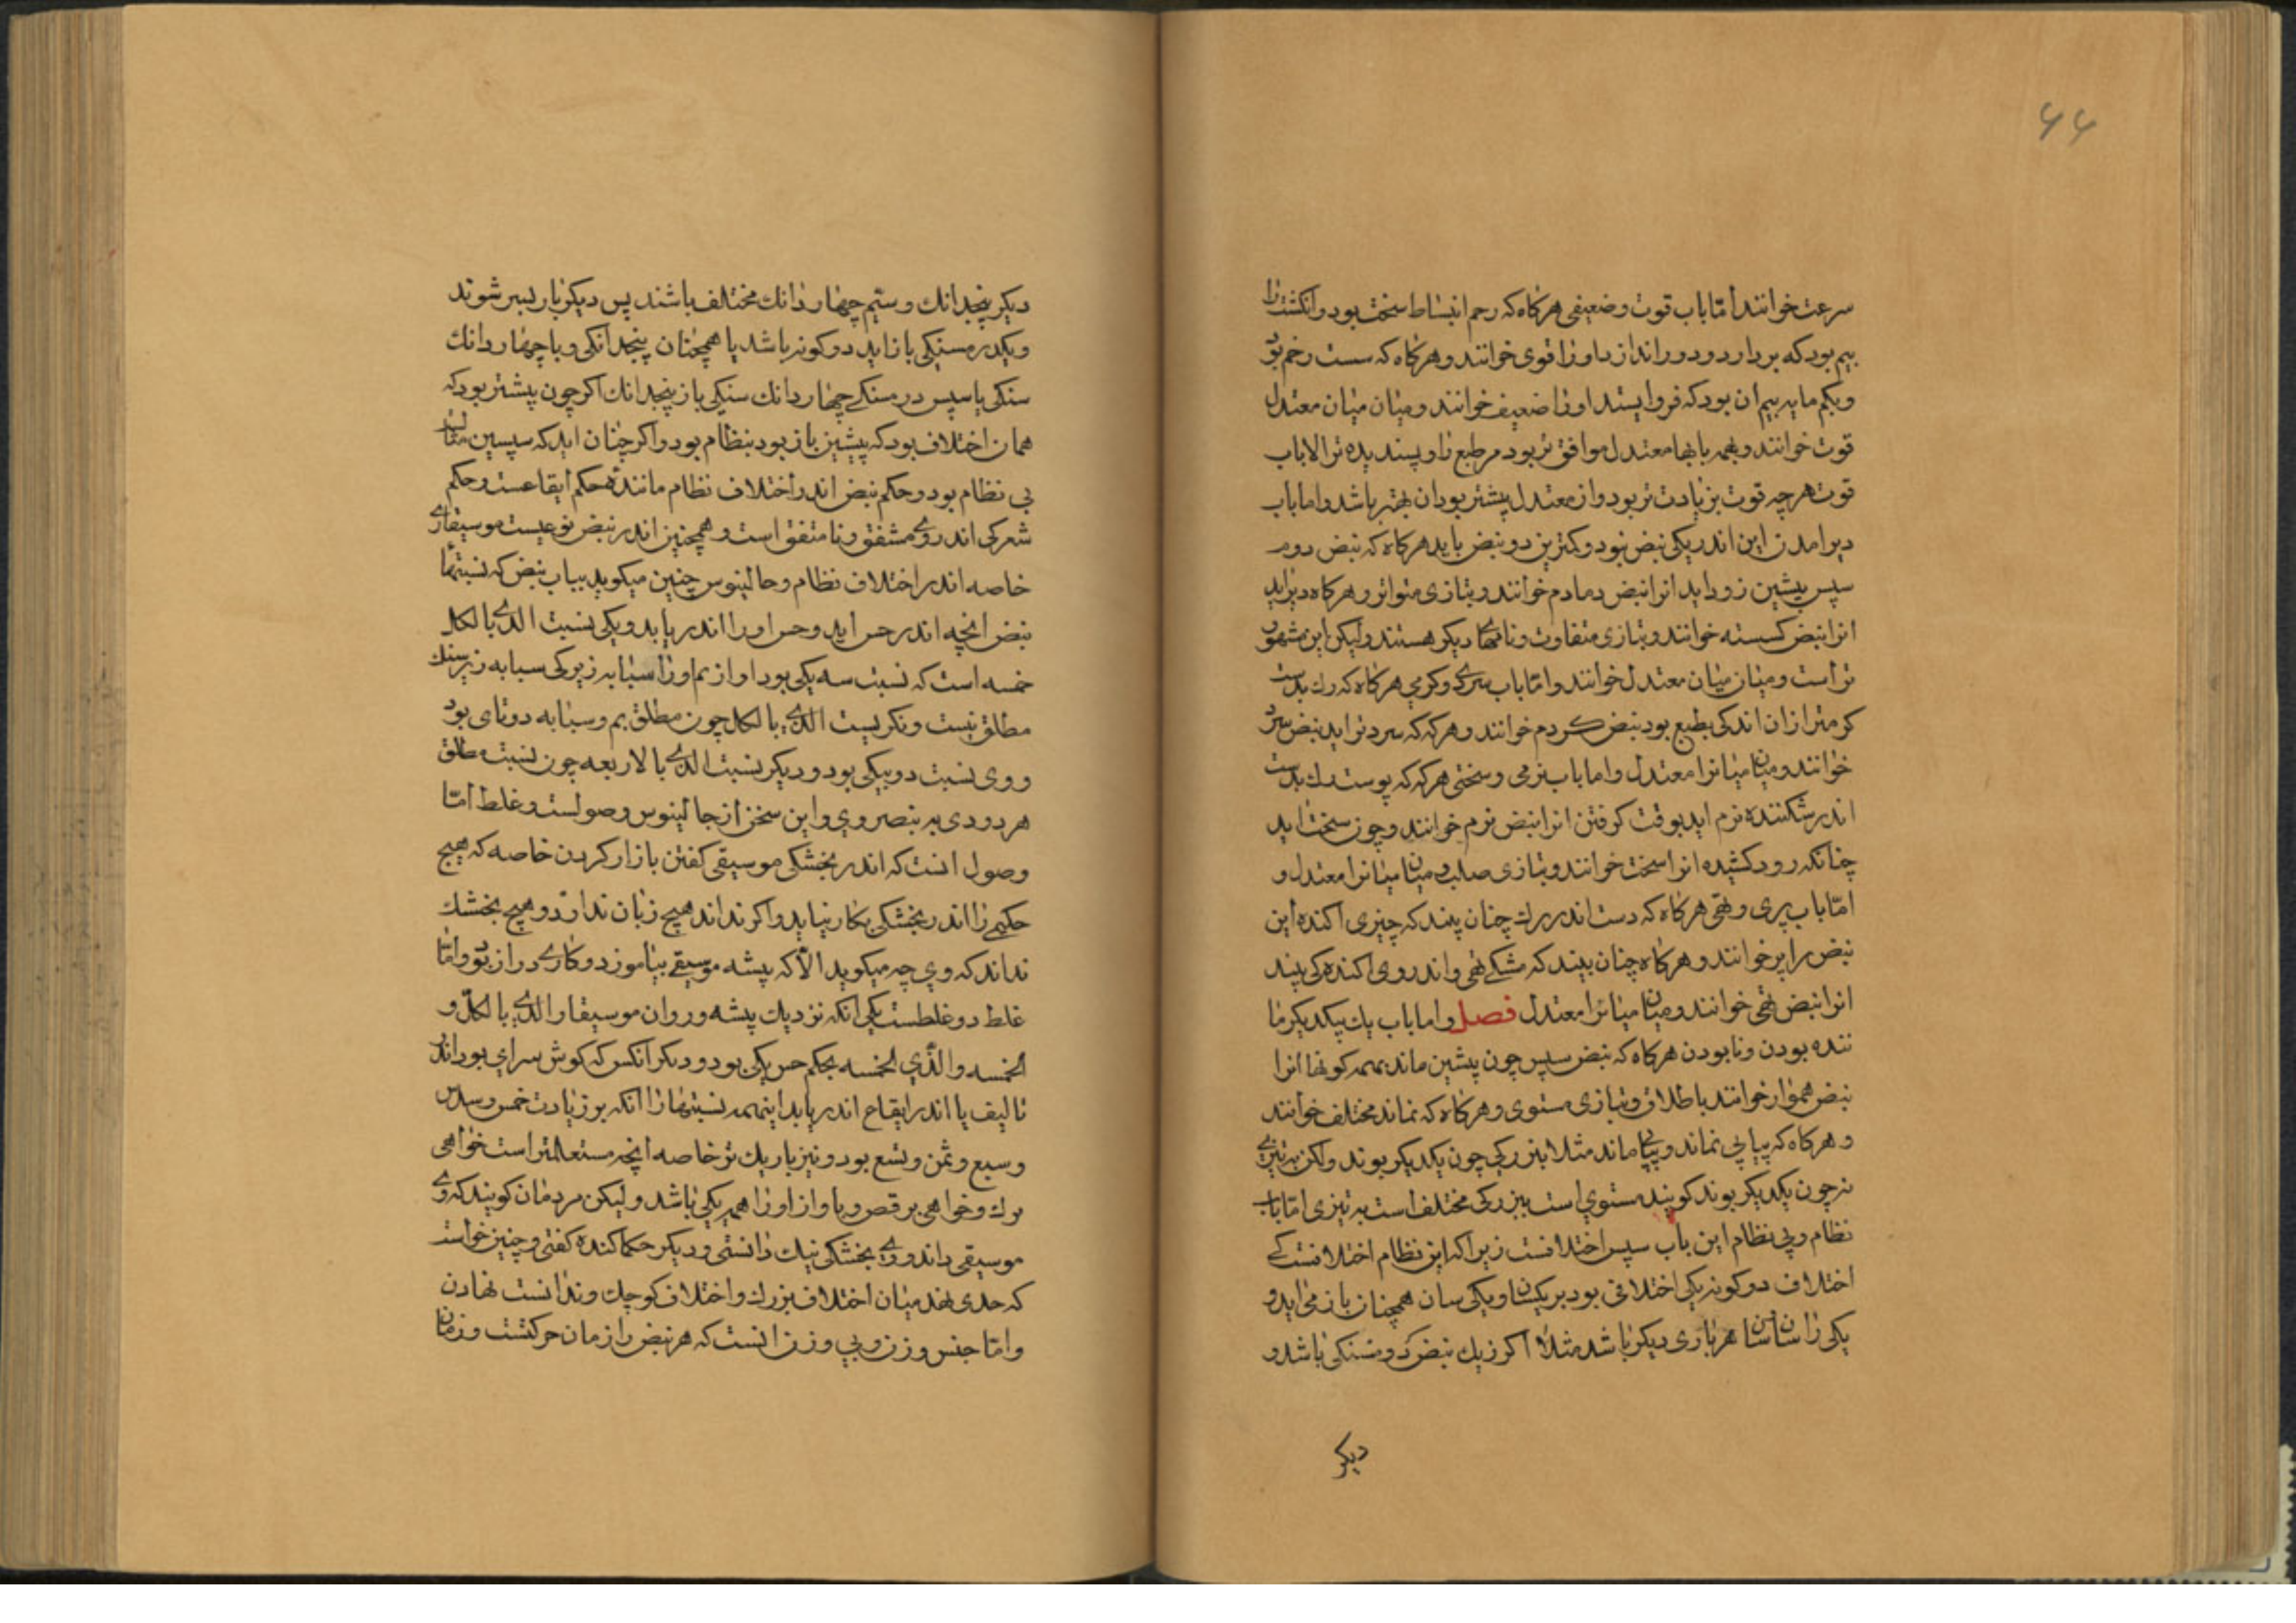 ۶۶
سرعت خوانند امّا باب قوت و ضعیفی هرکاه که رحم انبساط سخت بود و انکشت را
بیم بود که بردارد و دور اندازد اورا قوی خوانند و هرکاه که سست زخم بود
وبکم مایه بیم ان بود که فرو ایستد اورا ضعیف خوانند و میان میان معتدل
قوت خوانند و بهمه بابها معتدل موافق تر بود مر طبع را و پسندیده تر الا باب
قوت هرچه قوت بزیادت تر بود و از معتدل پیشتر بود ان بهتر باشد و اما باب
دیر امدن این اندر یکی نبض نبود و کمترین دو نبض باید هرکاه که نبض دوم
سپس پیشین زود اید انرا نبض دمادم خوانند و بتازی متواتر و هرکاه دیر اید
انرا نبض کسسته خوانند و بتازی متفاوت و نامهاء دیکر هستند ولیکن این مشهور
تر است و میان میان معتدل خوانند و امّا باب سردی و کرمی هرکاه که رك بدست
کرمتر از ان اندکی بطبع بود نبض کردم خوانند و هرکه که سردتر اید نبض سرد
خوانند و میان میانرا معتدل و اما باب نرمی و سختی هرکه که پوست رك بدست
اندر شکننده نرم اید بوقت کرفتن انرا نبض نرم خوانند و چون سخت اید
چنانکه رود کشیده انرا سخت خوانند و بتازی صلب و میان میانرا معتدل و
امّا باب پری و تهی هرکاه که دست اندر رك چنان بیند که چیزی اکنده این
نبض را پر خوانند و هرکاه چنان بیند که مشکی تهی و اندر وی اکندکی بیند
انرا نبض تهی خوانند و میان میانرا معتدل فصل و اما باب یك بیکدیکر ما
ننده بودن و نابودن هرکاه که نبض سپس چون پیشین ماند بهمه کونها انرا
نبض هموار خوانند باطلاق و بتازی مستوی و هرکاه که نماند مختلف خوانند
و هرکاه که بیابی نماند و بیابی ماند مثلا ببزرکی چون یکدیکر بوند ولکن به تیزی
نه چون یکدیکر بوند کویند مستوی است ببزرکی مختلف است به تیزی امّا باب
نظام و بی نظام این باب سپس اختلافست زیرا که این نظام اختلافست که
اختلاف دو کونه یکی اختلافی بود بر یکسان و یکی سان همچنان باز می اید و
یکی را سان سان هر باری دیکر باشد مثلاً اکر زیك نبض درمسنکی باشد و
دیکر
دیکر پنجدانك و ستیم چهار دانك مختلف باشند پس دیکر بار بسر شوند
و یکدرمسنکی باز اید دو کونه باشد یا همچنان پنجدانکی و با چهار دانك
سنکی یا سپس درمسنکی چهار دانك سنکی باز پنجدانك اکر چون پیشتر بود که
همان اختلاف بود که پیشین باز بود بنظام بود و اکر چنان اید که سپسین
بی نظام بود و حکم نبض اندر اختلاف نظام ماننده حکم ایقاعست و حکم
شعر کی اندر وی مشفق و نا متفق است و همچنین اندر نبض نوعیست موسیقاری
خاصه اندر اختلاف نظام و جالینوس چنین میکوید بیاب نبض که نسبتها
نبض انچه اندر حس اید و حس اورا اندر یابد و یکی نسبت الذی بالکل
خمسه است که نسبت سه یکی بود او از بم اورا سبابه زیر کی سبابه زیر سنك
مطلق نیست و نکریست الذی بالکل چون مطلق بم و سبابه دوتای بود
و وی نسبت دو بیکی بود و دیکر نسبت الذی بالاربعه چون نسبت مطلق
هر دودی به بنصر وی و این سخن از جالینوس وصولست و غلط امّا
وصول انست که اندر بخشکی موسیقی کفتن بازار کردن خاصه که هیچ
حکیمی را اندر بخشکی بکار نیاید و اکر نداند هیچ زیان ندارد و هیچ بخشك
نداند که وی چه میکوید الاّ که پیشه موسیقی بیاموزد و کاری دراز بود و امّا
غلط دو غلطست یکی انکه نزدیك پیشه وروان موسیقار الذی بالکلّ و
الخمسه و الّذی الخمسه بحکم حس یکی بود و دیکر انکس که کوش سرای بود اندر
تالیف یا اندر ایقاع اندر یابد اینهمه نسبتها را انکه بر زیادت خمس و سدس
و سبع و ثمن و تسع بود و نیز باریك تر خاصه انچه مستعملتر است خواهی
برك و خواهی برقص و باواز اورا همه یکی باشد ولیکن مردمان کویند که وی
موسیقی داند و وی بخشکی نیك دانستی و دیکر حکما کنده کفتی و چنین خواست
که حدی نهند میان اختلاف بزرك و اختلاف کوچك و ندانست نهادن
و امّا جنس وزن و بی وزن انست که هر نبض را زمان حرکتست و زمان